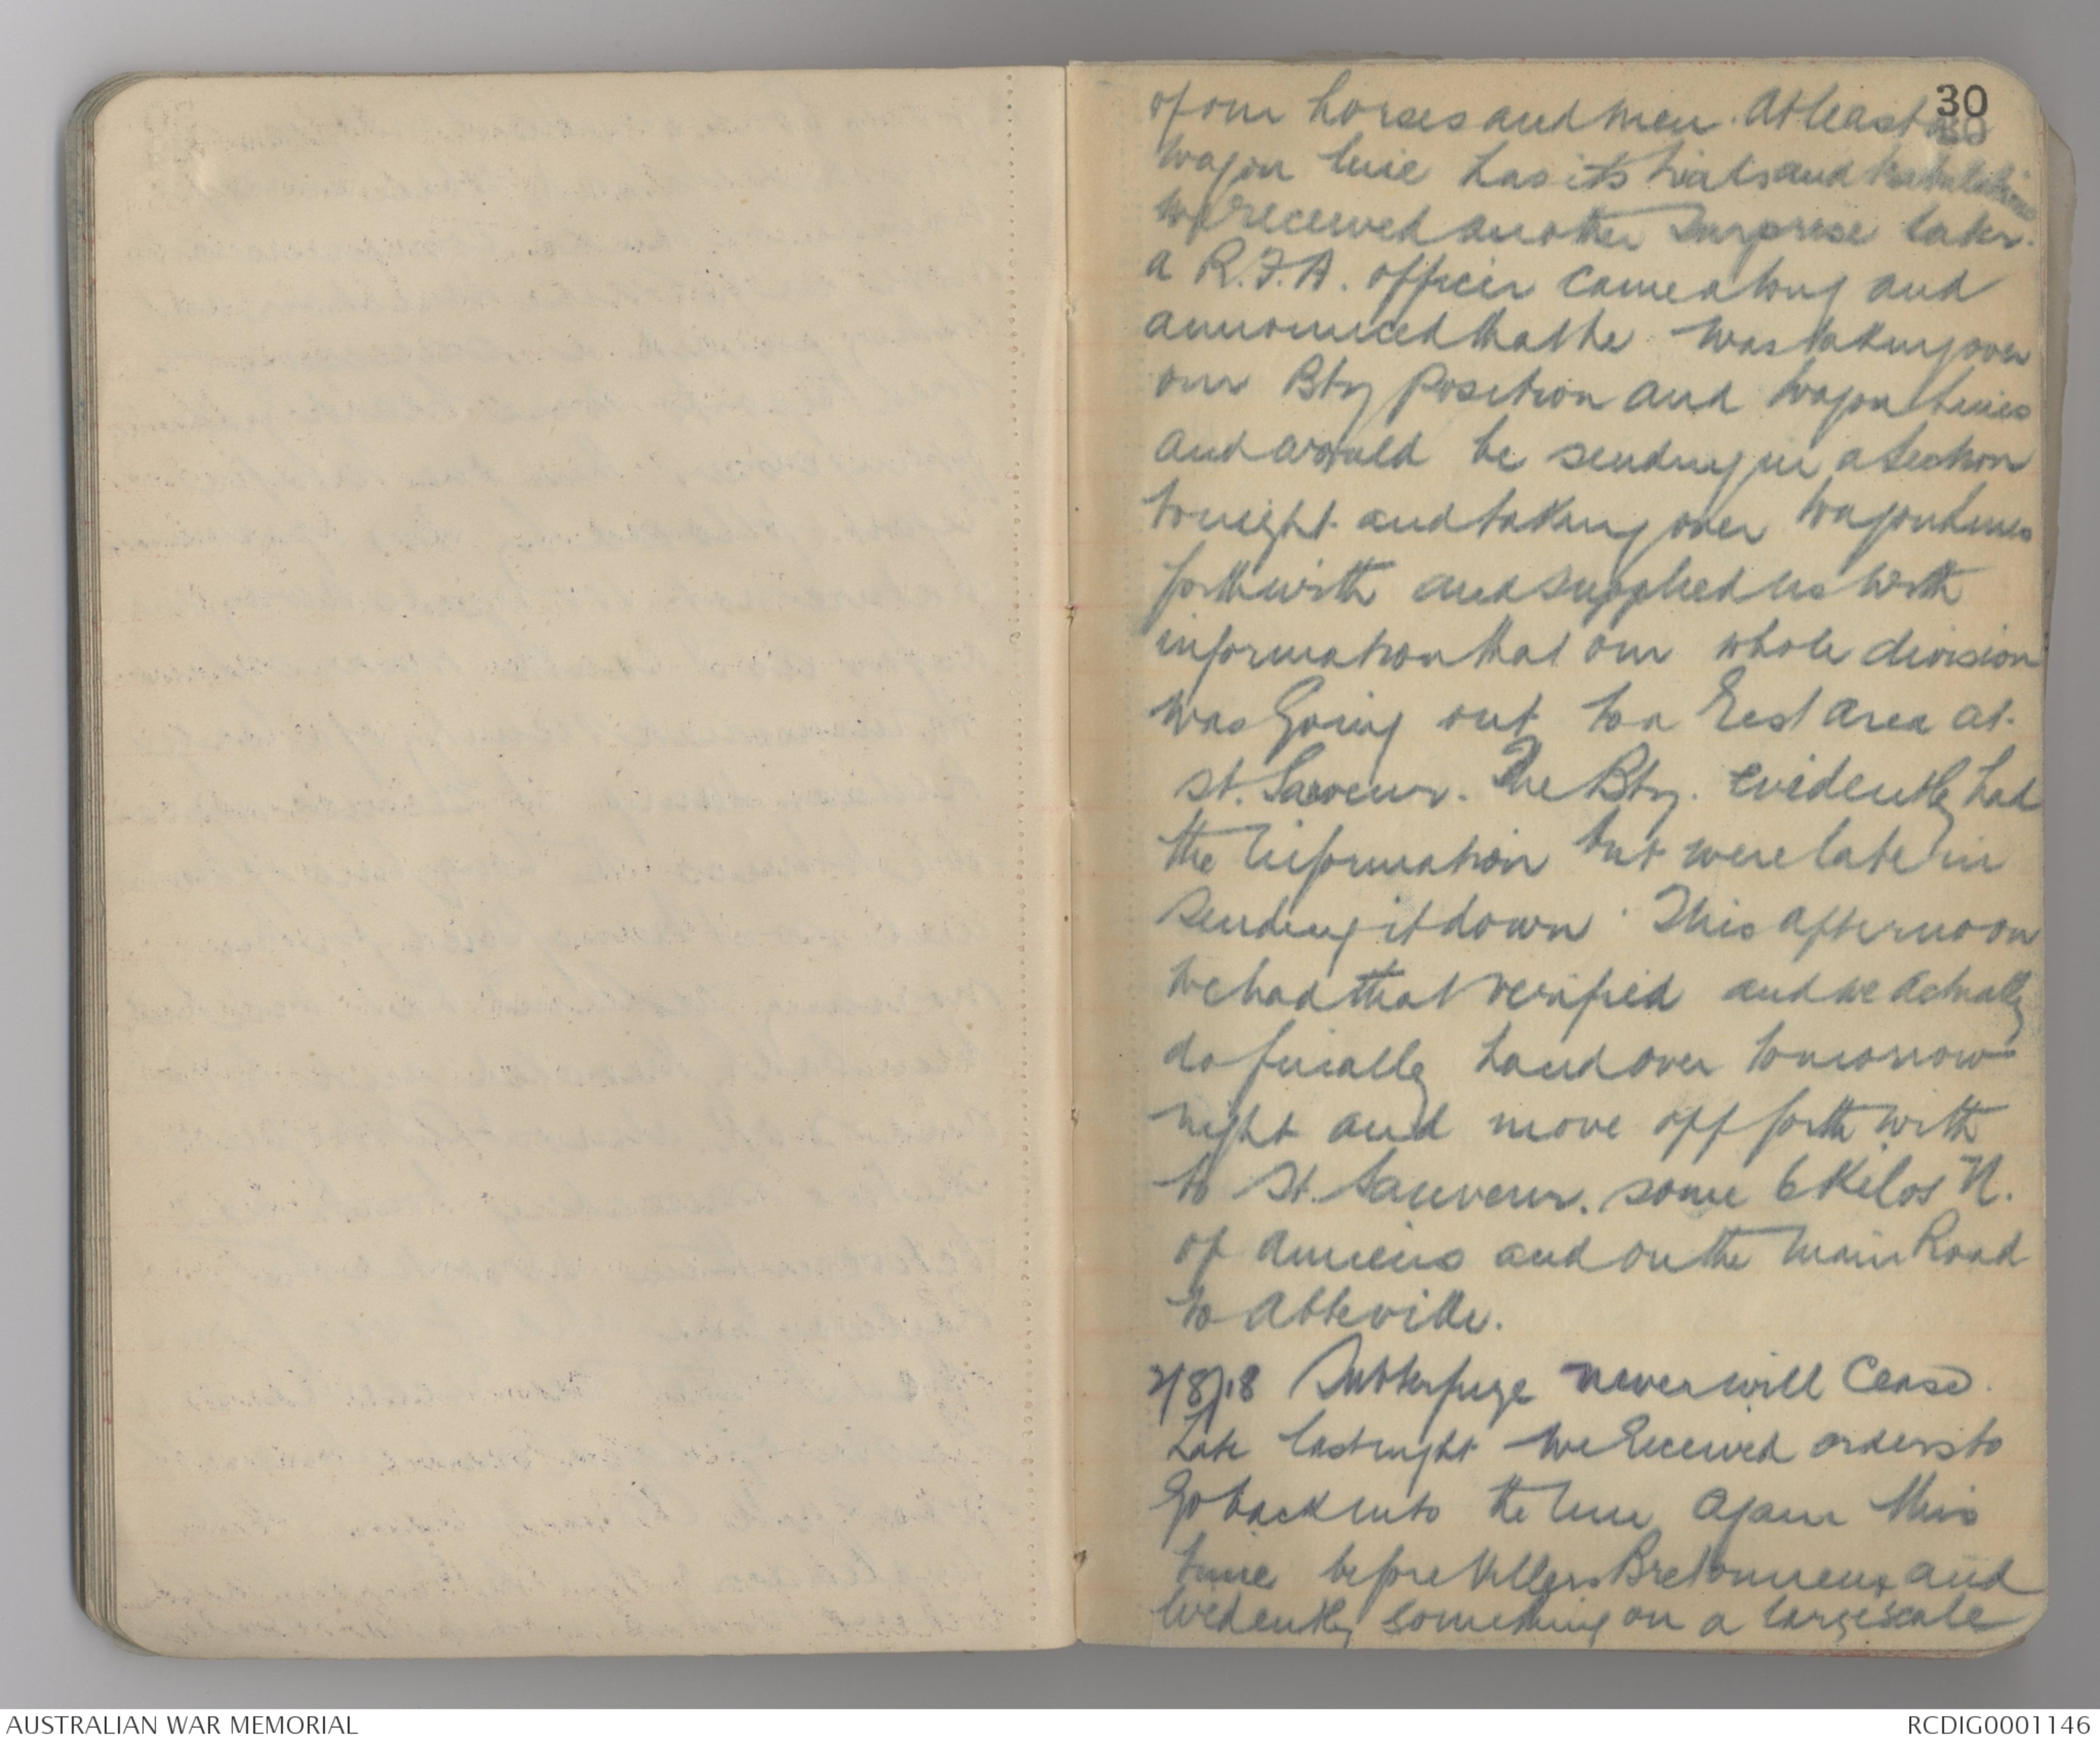 30
of our horses and men. At least a
Wagon line has its trials and tribulations
We received another surprise later.
a R.F.A. officer came along and
announced that he was taking over
our Bty position and Wagon Lines
and would be sending in a section
tonight and taking over Wagon Lines
forthwith and supplied us with
information that our whole division
was Going out to a Rest area at
St. Sauveur. The Bty. evidently had
the information but were late in
sending it down. This afternoon
We had that verified and we actually
do finally hand over tomorrow
night and move off forthwith
to St. Sauveur. some 6 Kilos N.
of Amiens and on the Main Road
to Abbeville.
2/8/18 Subterfuge never will Cease.
Late last night We Received orders to
Go back into the line again this
time before Villers Bretonneux and
Evidently something on a large scale
AUSTRALIAN WAR MEMORIAL
RCDIG0001146